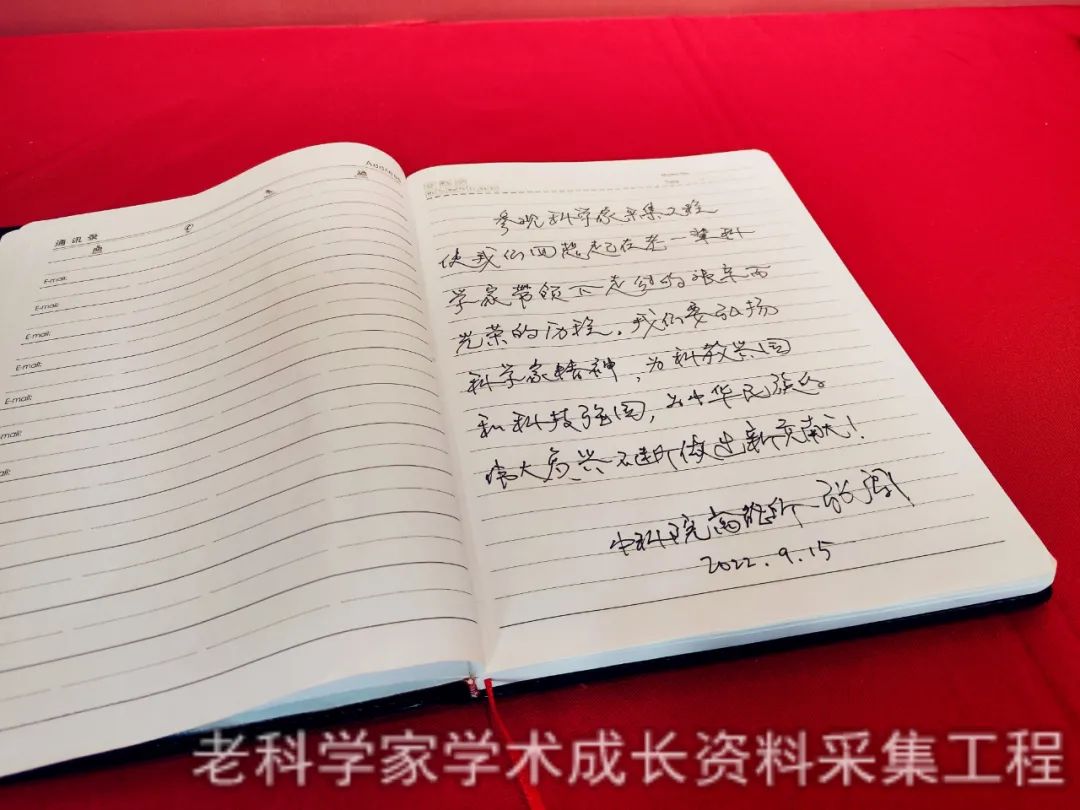 通讯录
Address
E-mail:
E-mail:
E-mail:
E-mail:
E-mail:
参观科学家采集工程
使我们回想起在老一辈科
学家带领下走过的艰辛而
光荣的历程。我们要弘扬
科学家精神，为科教兴国
和科技强国，为中华民族的
伟大复兴不断做出新贡献！
中科院高能所 张闯
2022.9.15
老科学家学术成长资料采集工程